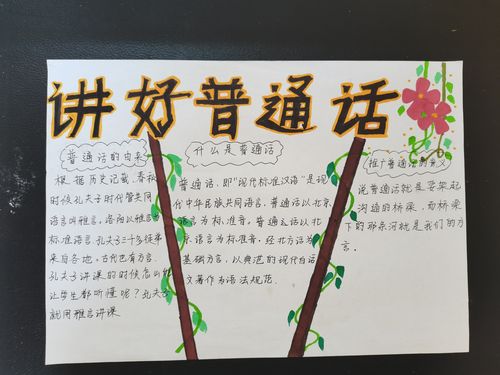 讲好普通话
普通话的由来
根据历史记载,春秋
时候孔夫子时代管共同
语言叫雅言。洛阳以雅言为
标准语言,孔夫子三千多徒弟
来自各地,古代也有方言.
孔夫子讲课的时候怎么
让学生都听懂呢?孔夫子
就用雅言讲课
什么是普通话
普通话,即"现代标准汉语"是现
代中华民族共同语言,普通话以北京
语言为标准音。普通话以北
京语言为标准音,经北方话为
基础方言,以典范的现代白话
文著作为语法规范.
推广普通话的意义
说普通话就是要架起
沟通的桥梁,而桥梁
下的那条河就是我们的方
言。